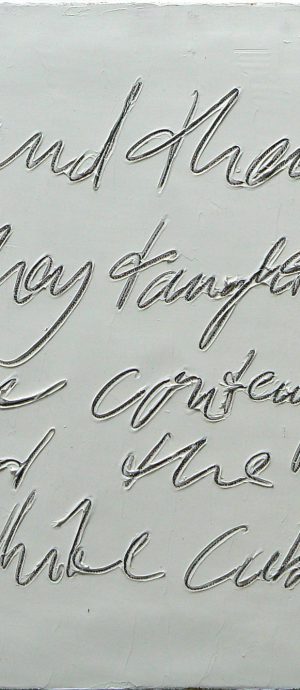 and then
hey taugh
e conte
d the
white cub